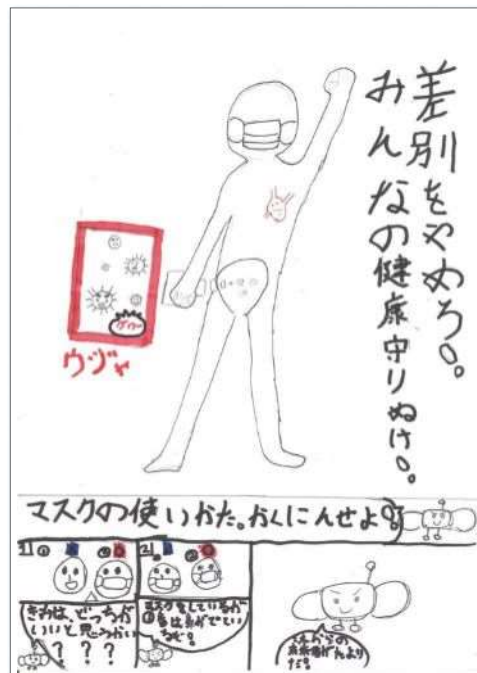 差別をやめろ。
みんなの健康守りぬけ。
ウジャ
マスクの使いかた。かくにんせよ。
1 ① ②
きみは、どっちが
いいと思うかい
? ? ?
2 ① ②
マスクをしているが
①は鼻がでてい
るぞ!
これからの